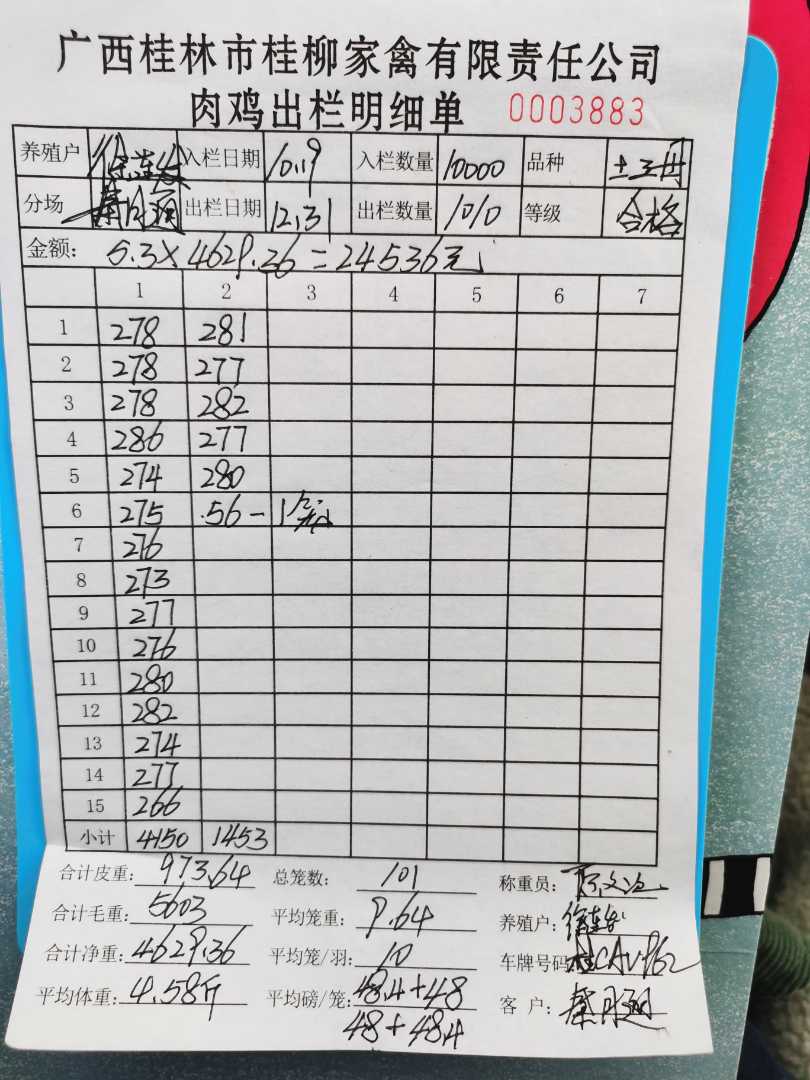 广西桂林市桂柳家禽有限责任公司
肉鸡出栏明细单 0003883
养殖户 入栏日期 10.19 入栏数量 10000 品种
分场 秦月 出栏日期 12.31 出栏数量 1010 等级 合格
金额: 5.3×4629.36=24536元
1 2 3 4 5 6 7
1 278 281
2 278 277
3 278 282
4 286 277
5 274 280
6 275 56-1笼
7 276
8 273
9 277
10 276
11 280
12 282
13 274
14 277
15 266
小计 4150 1453
合计皮重: 973.64 总笼数: 101 称重员:
合计毛重: 5603 平均笼重: 9.64 养殖户:
合计净重: 4629.36 平均笼/羽: 10 车牌号码: 桂CAV962
平均体重: 4.58斤 平均磅/笼: 48.4+48 客户: 秦月
48+48.4